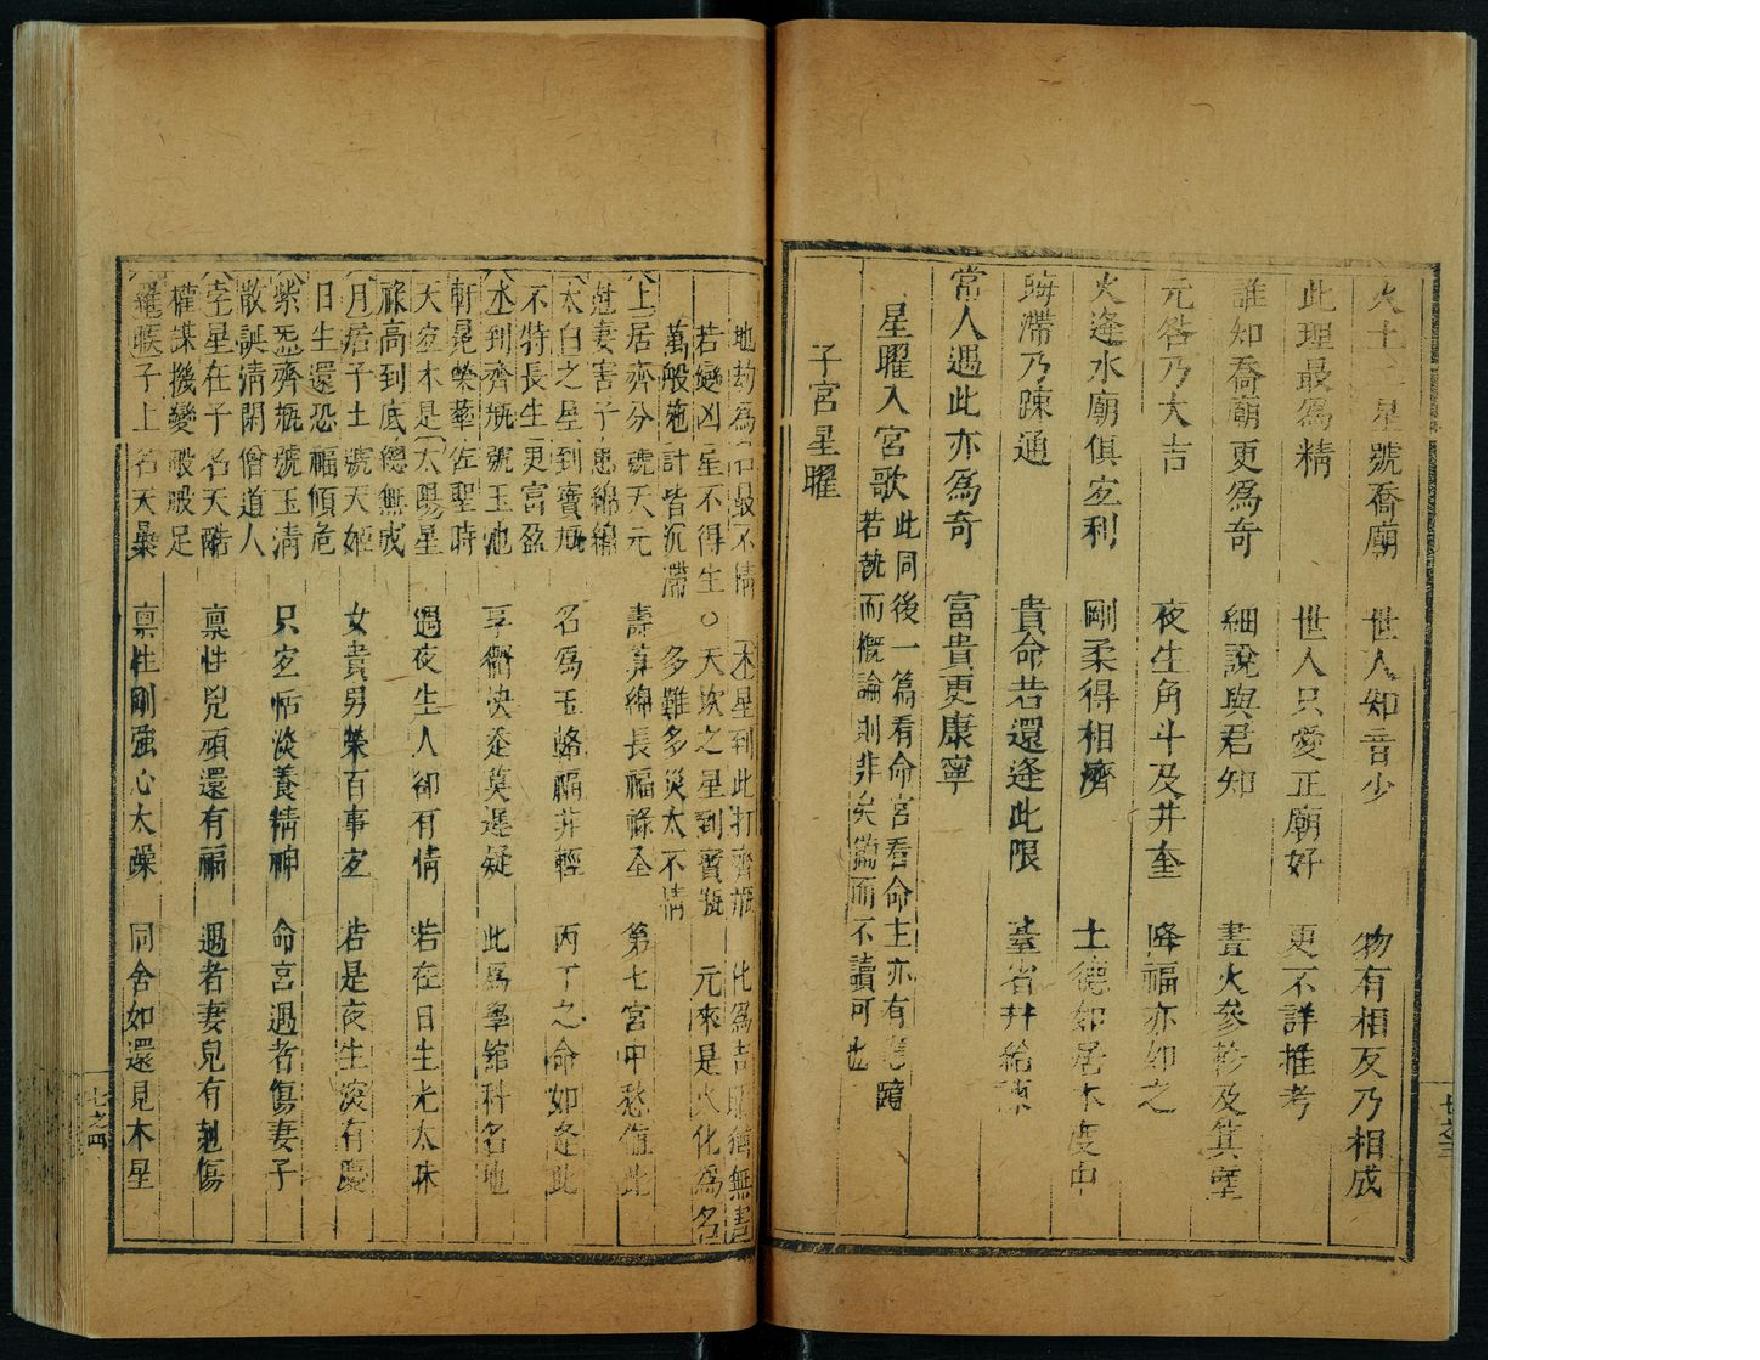 火土二星號喬廟 世人知音少 物有相反乃相成
此理最爲精 世人只愛正廟好 更不詳推考
誰知喬廟更爲奇 細說與君知 晝火參軫及箕壁
元咎乃大吉 夜生角斗及井奎 降福亦如之
火逢水廟俱宜利 剛柔得相濟 土德如居木度中
晦滯乃疎通 貴命若還逢此限 臺省幷給諫
常人遇此亦爲奇 富貴更康寧
星曜入宮歌 此同後一篇看命宮看命主亦有躔
若執而概論則非矣篇而不讀可也
子宮星曜
地劫爲口最不情 木星到此打齊瓶 化爲吉
若變凶星不得生○天坎之星到寶瓶 元來是火化爲名
萬般施計皆沉滯 多難多災太不情
土居齊分號天元 壽算綿長福祿全 第七宮中愁值此
尅妻害子患綿綿
太白之星到寶瓶 名爲玉輅福非輕 丙丁之命如逢此
不特長生更富盈
水到齊瓶號玉池 亨衢快走莫遲疑 此爲學館科名地
軒冕榮華佐聖時
天宜木是太陽星 遇夜生人卻有情 若在日生光太珠
祿高到底總無成
月居子土號天姬 女貴男榮百事宜 若是夜生淡有慶
日生還恐福傾危
紫炁齊瓶號玉清 只宜恬淡養精神 命宮遇者傷妻子
散誕清閑僧道人
孛星在子名天酷 禀性兇頑還有福 遇者妻兒有尅傷
權謀機變般般足
羅睺子上名天梟 禀性剛強心太躁 同舍如還見木星
七之四